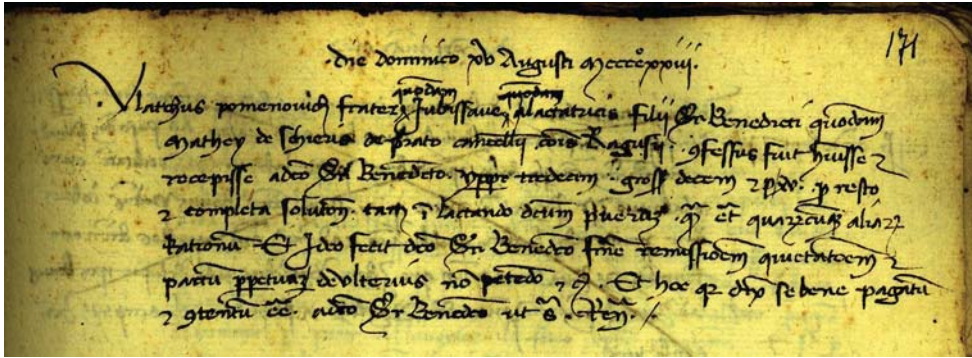 171
die dominico xv Augusti Mccccxxiii.
quodam quodam
Vlatchus pomenovich frater Jubissave alactatricis filii Ser Benedicti quodam
Mathey de de prato cancellarii cois Ragusii. 9fessus fuit huisse
recepisse adco Ser Benedicto. yppr tredecim. gross decem p resto
completa solucon. tam lactando dcum pueru q et quarucuq aliar
Rationu. Et Ideo fecit dco Ser Benedco fine remissioem quietatoem
pactu ppetuu de ulterius no petedo. Et hoc qr dix se bene pagatu
9tentu ee. adco Ser Benedco ut s.